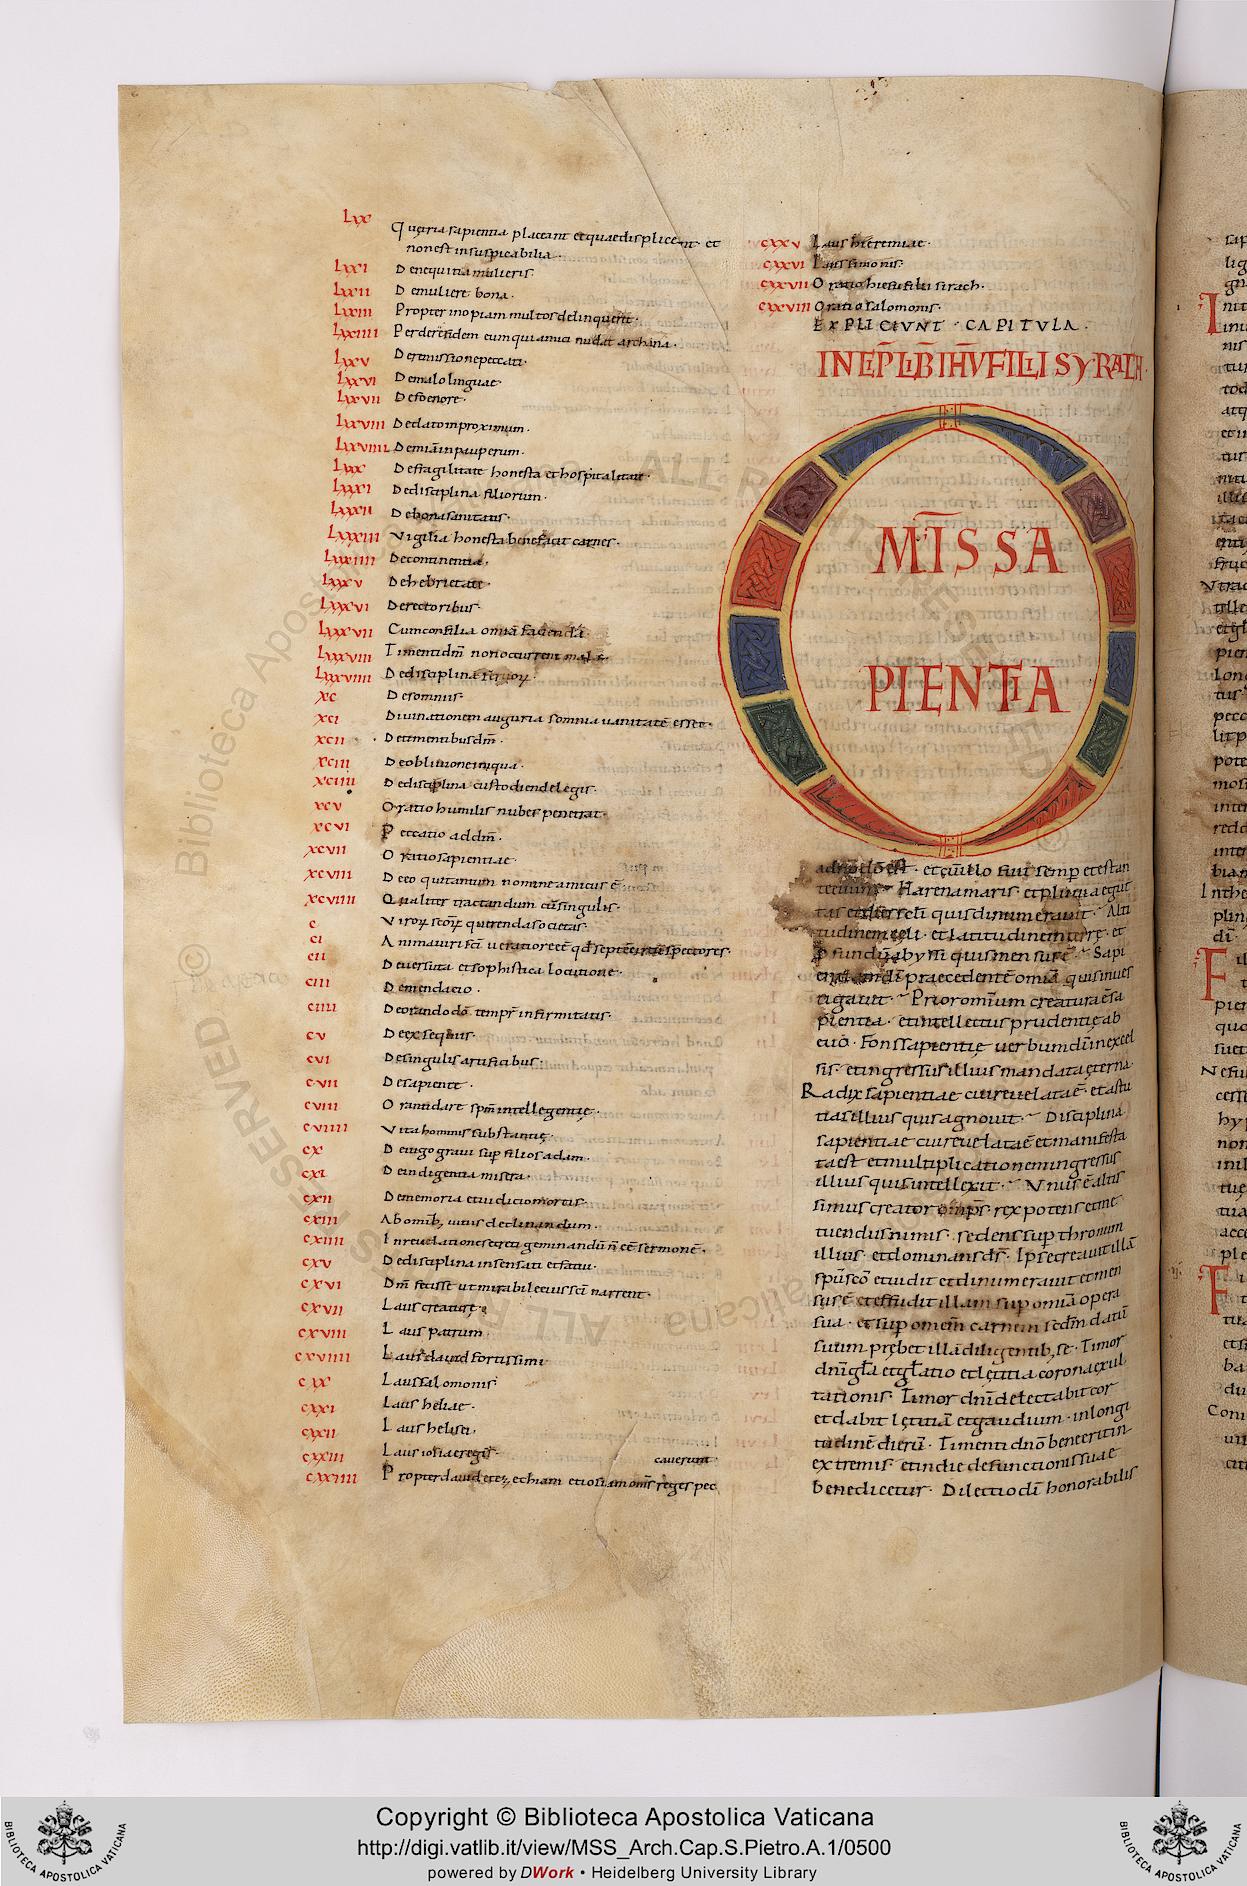 Lxx Quętria sapientia placeant et quae displiceant et
non est in suspicabilia.
Lxxi De nequitia mulieris
Lxxii De muliere bona.
Lxxiii Propter inopiam multos delinquere.
Lxxiiii Perderē
Lxxv De remissione peccati.
Lxxvi De malo linguae
Lxxvii De foenore.
Lxxviii De dato in proximum.
Lxxviiii De mīa in pauperum.
Lxxx De fragilitate honesta et hospitalitate.
Lxxxi De disciplina filiorum.
Lxxxii De bona sanitatis.
Lxxxiii Vigilia honesta benefaciit carnes.
Lxxxiiii De continentia.
Lxxxv De hebrietate.
Lxxxvi De rectoribus.
Lxxxvii Cum consilia omīa facienda
Lxxxviii Timenti dm̄ non occurrent mala.
Lxxxviiii De disciplina servoꝝ.
xc De somniis.
xci Divinationem auguria somnia vanitatē esse.
xcii De timentibus dm̄.
xciii De oblivione iniqua.
xciiii De disciplina custodiende legis.
xcv Oratio humilis nubes penetrat.
xcvi Peccatio ad dm̄.
xcvii Oratio sapientiae.
xcviii De eo qui tantum nomine amicus ē
xcviiii Qualiter tractandum cū singulis.
c Viroꝝ scōꝝ querenda societas.
ci Anima viri scī
cii De versuta et sophistica locutione.
ciii De mendacio.
ciiii De orando dō tempr̄ infirmitatis.
cv De exsequiis.
cvi De singulis artificibus.
cvii De sapiente.
cviii Oranti dare spm̄ intellegentię.
cviiii Vita hominis substantię.
cx De iugo gravi sup filios adam.
cxi De indigentia misera.
cxii De memoria et iudicio mortis.
cxiii Ab omib; vitiis declinandum.
cxiiii In revelatione secreti geminandū n̄ eē sermonē.
cxv De disciplina insensati et fatui.
cxvi Dm̄ fecisse ut mirabile eius scī narrent.
cxvii Laus creaturę.
cxviii Laus patrum
cxviiii Laus david fortissimi
cxx Laus salomonis
cxxi Laus heliae.
cxxii Laus helisei.
cxxiii Laus iosiae regis.
caverunt.
cxxiiii Propter david et ezechiam et iosiam omīs reges pec
cxxv Laus hieremiae.
cxxvi Laus simonis.
cxxvii Oratio hiesu filii sirach.
cxxviii Oratio salomonis.
EXPLICIUNT CAPITULA.
INCIP LIB IHU FILII SYRACH.
OMĪS SA
PIENTIA
a dnō dō est. et cū illo fuit semp et est an
te evum. Harena maris. et pluviae gut
tas et dies seculi quis dinumeravit. Alti
tudinem celi. et latitudinem terrę. et
Pfundū abyssi quis mensus ē. Sapi
entiam dī praecedentē omīa quis inves
tigavit. Prior omīum creata ē sa
pientia. et intellectus prudentię ab
evo. Fons sapientię verbum dī in excel
sis et ingressus illius mandata ęterna
Radix sapientiae cui revelata ē. et astu
tias illius quis agnovit. Disciplina
sapientiae cui revelata ē et manifesta
ta est et multiplicationem ingressus
illius quis intellexit. Unus ē altis
simus creator omīps. rex potens et me
tuendus nimis. sedens sup thronum
illius. et dominans ds̄. Ipse creavit illā
spū scō et vidit et dinumeravit et men
sus ē et effudit illam sup omīa opera
sua. et sup omēm carnem scdm datū
suum prębet illā diligentib; se. Timor
dnī gła et głatio et lętitia et corona exul
tationis. Timor dnī delectabit cor
et dabit lętitiā et gaudium. in longi
tudinē dierū. Timenti dnō bene erit in
extremis et in die defunctionis suae
benedicetur. Dilectio dī honorabilis
Copyright © Biblioteca Apostolica Vaticana
http://digi.vatlib.it/view/MSS_Arch.Cap.S.Pietro.A.1/0500
powered by DWork • Heidelberg University Library